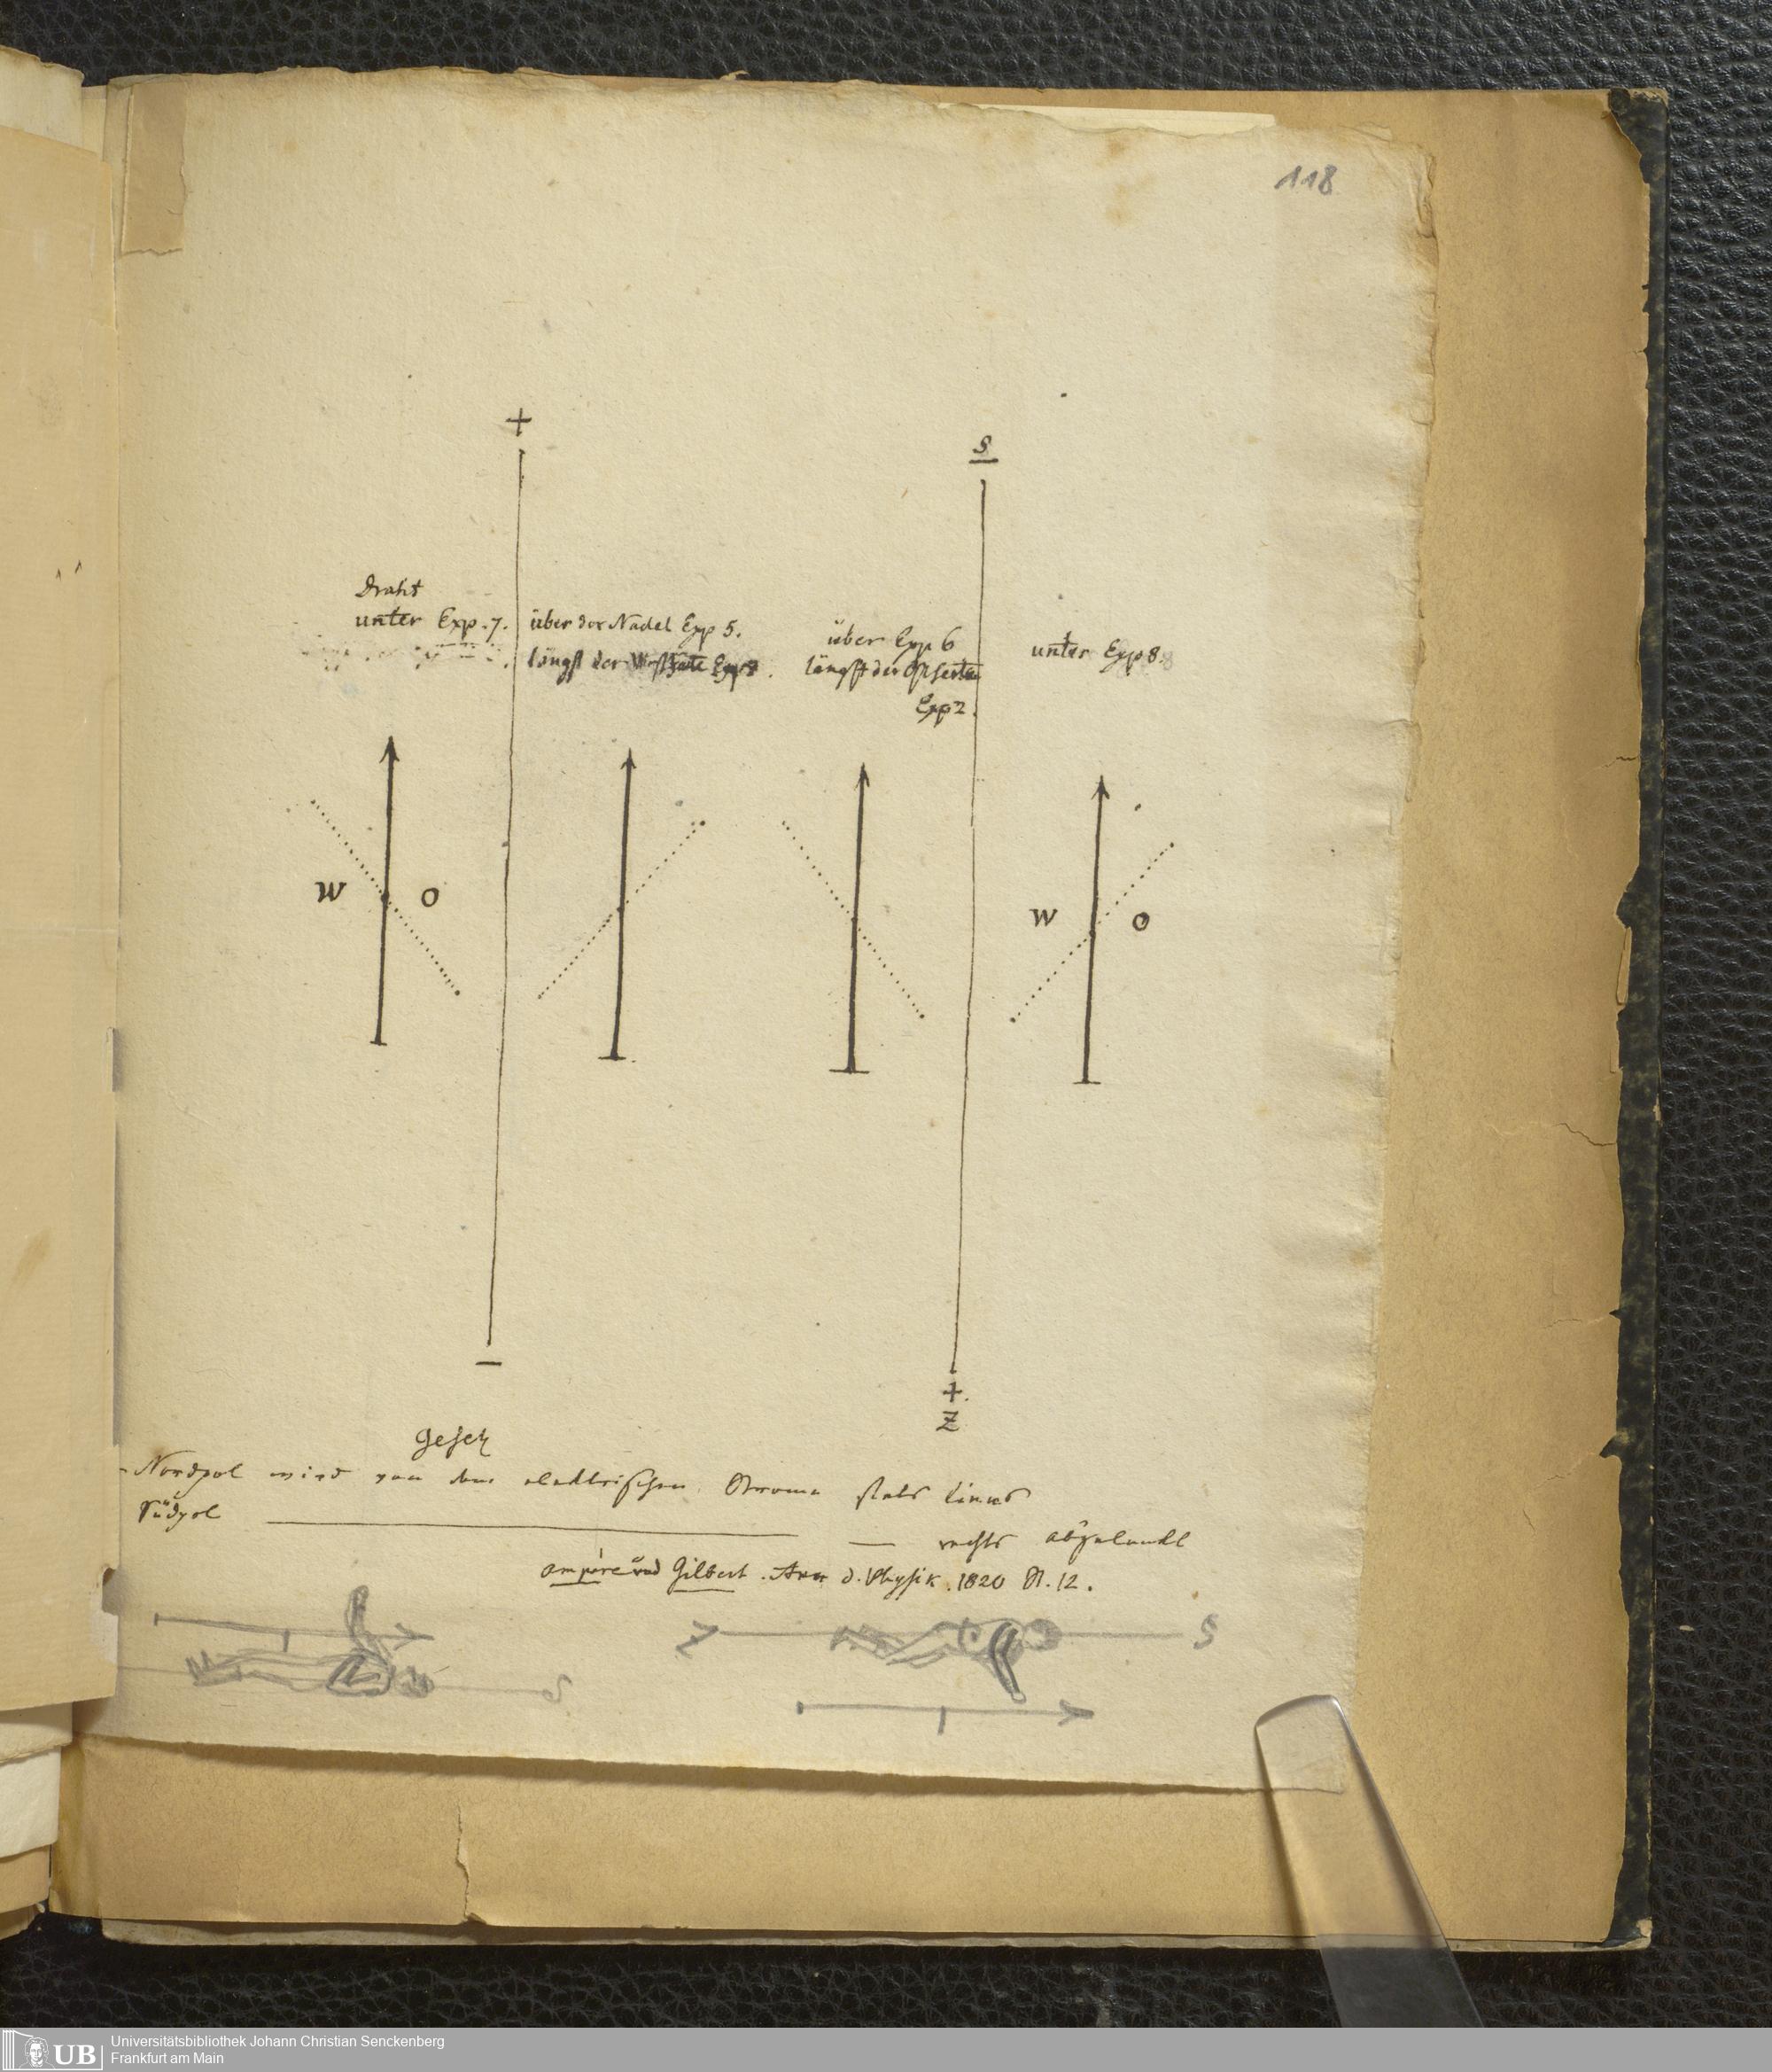 118
+
S
Draht
unter Exp. 7.
über der Nadel Exp 5.
längst der Westseite Exp
über Exp 6
längst der Ostseite
Exp 2.
unter Exp 8.
W O
W O
–
+
Z
Gesetz
Nordpol wird von dem elektrischen Strome stets links
Südpol ——— — rechts abgelenkt
Ampère und Gilbert. Ann d. Physik. 1820 St. 12.
S
Z S
UB
Universitätsbibliothek Johann Christian Senckenberg
Frankfurt am Main